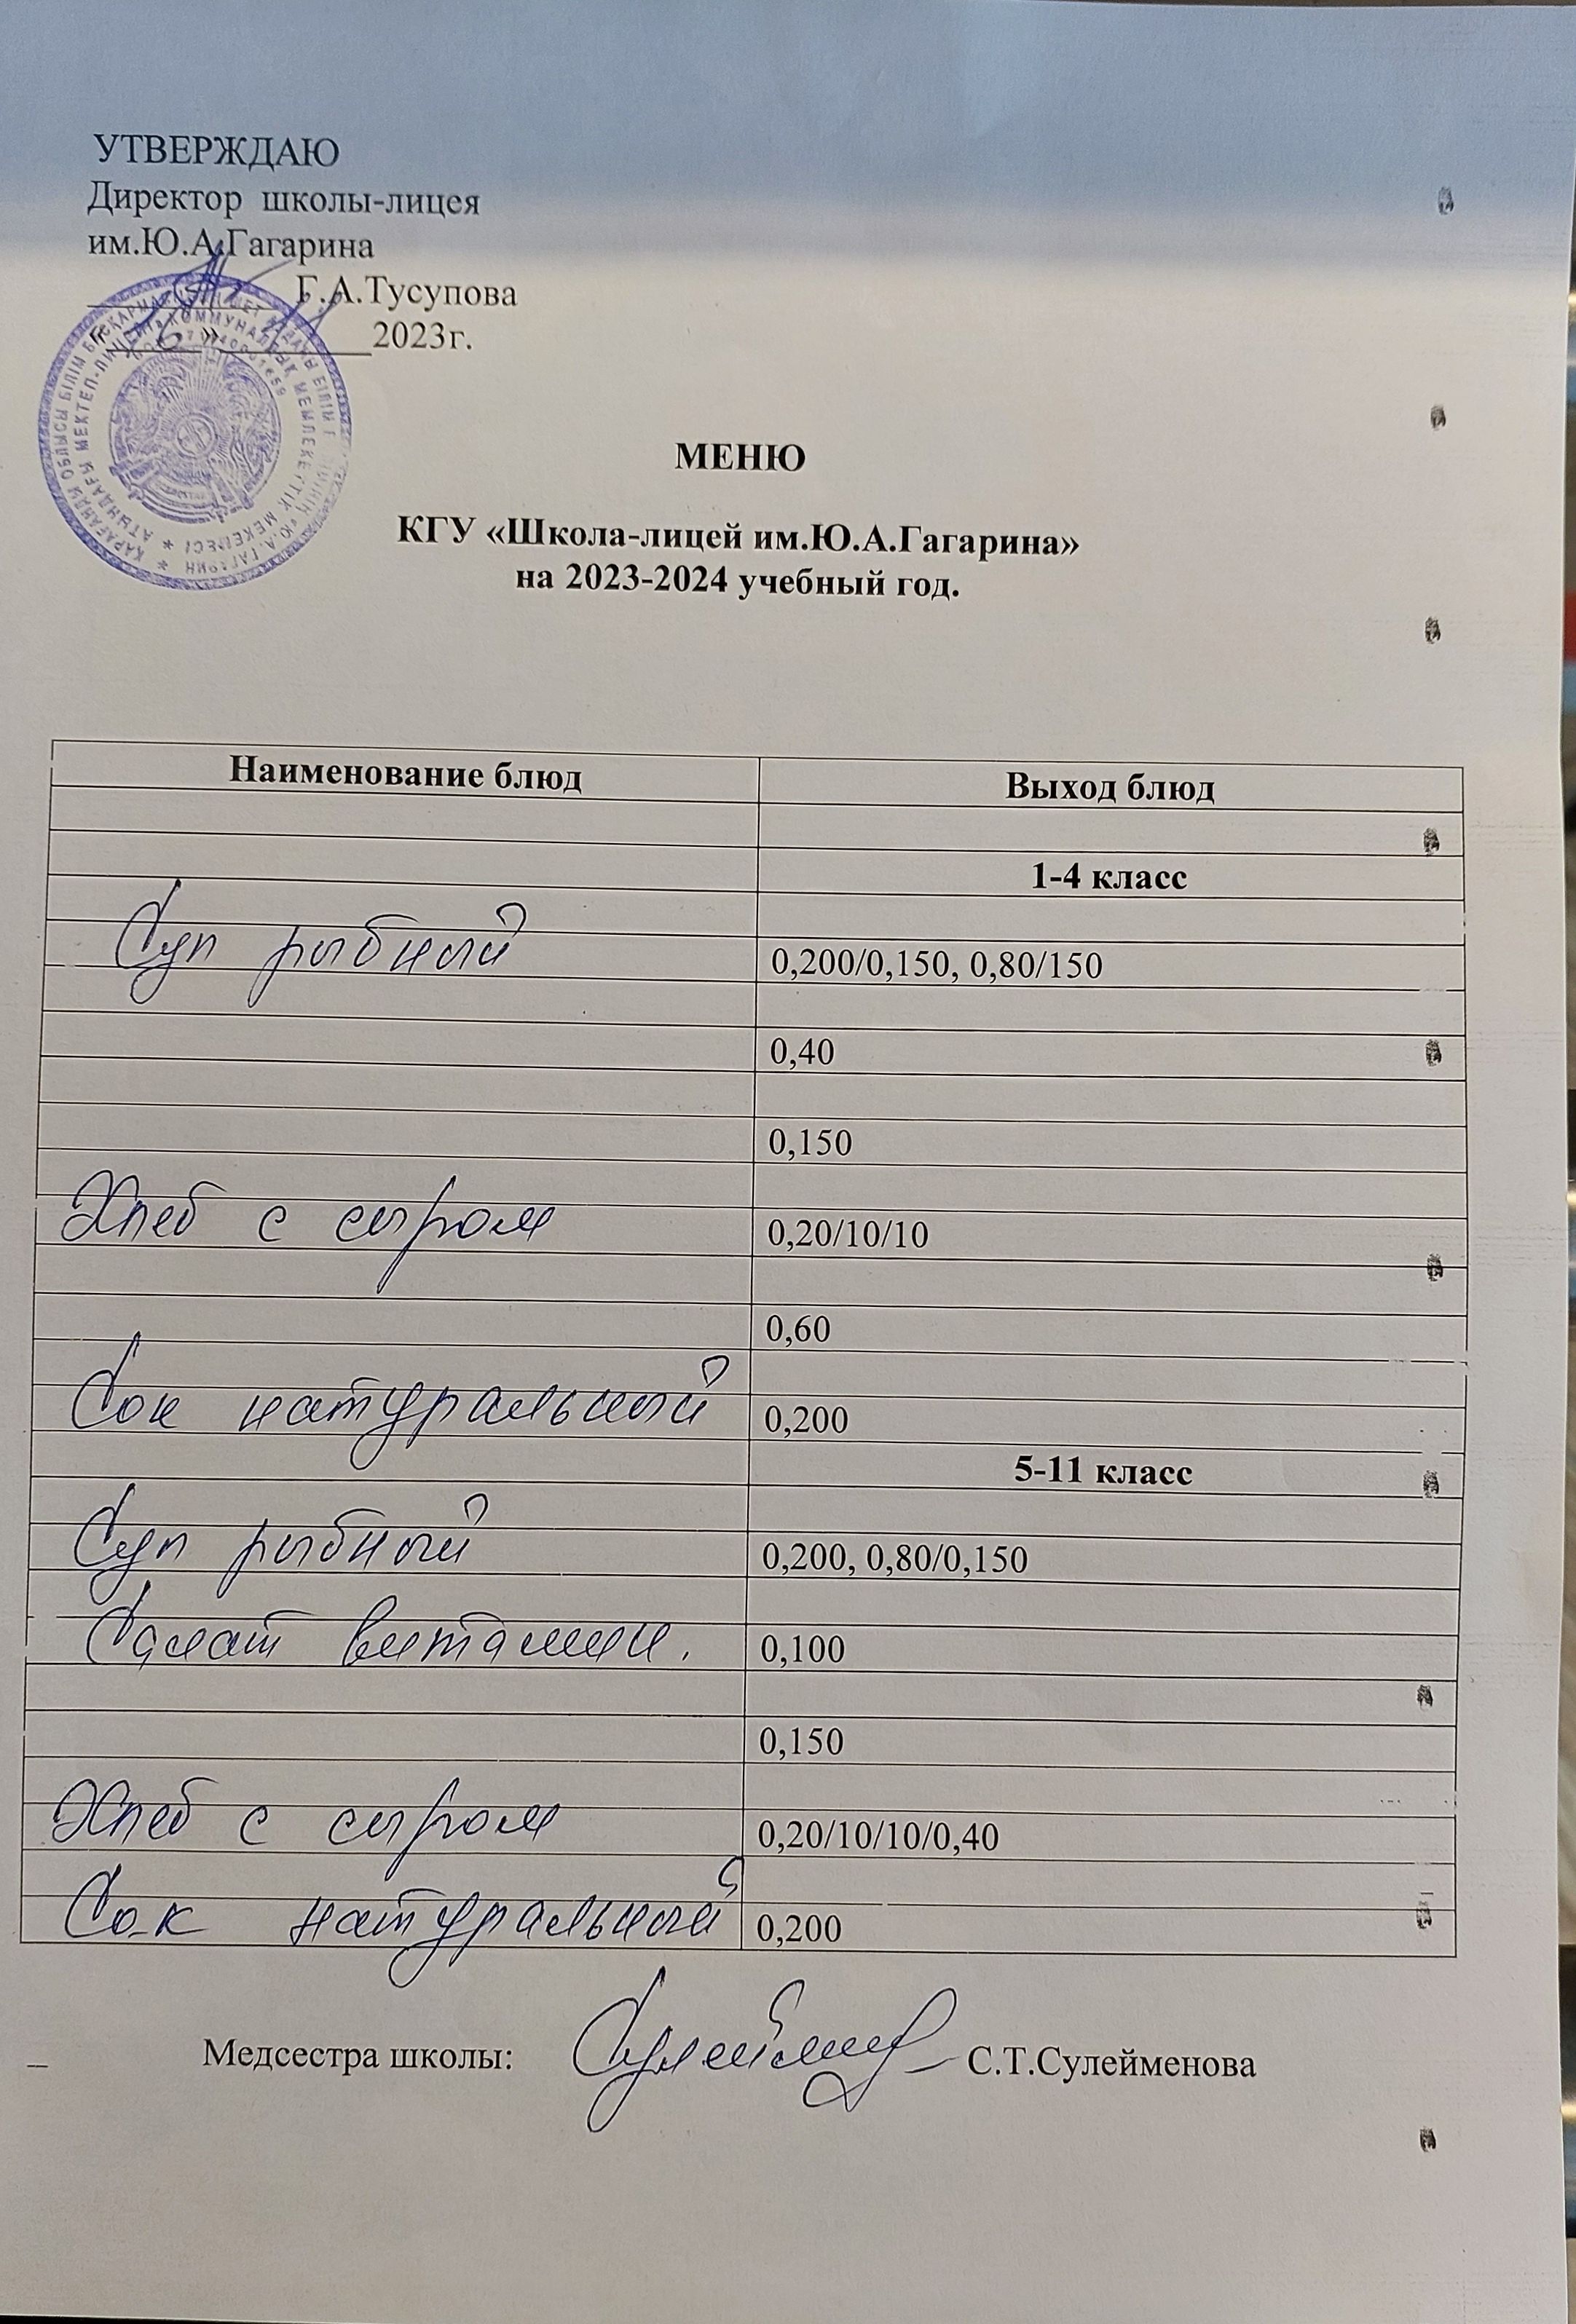 УТВЕРЖДАЮ
Директор школы-лицея
им.Ю.А.Гагарина
Г.А.Тусупова
« » 2023г.
МЕНЮ
КГУ «Школа-лицей им.Ю.А.Гагарина»
на 2023-2024 учебный год.
Наименование блюд Выход блюд
1-4 класс
Суп рыбный 0,200/0,150, 0,80/150
0,40
0,150
Хлеб с сыром 0,20/10/10
0,60
Сок натуральный 0,200
5-11 класс
Суп рыбный 0,200, 0,80/0,150
Салат витамин. 0,100
0,150
Хлеб с сыром 0,20/10/10/0,40
Сок натуральный 0,200
Медсестра школы: С.Т.Сулейменова